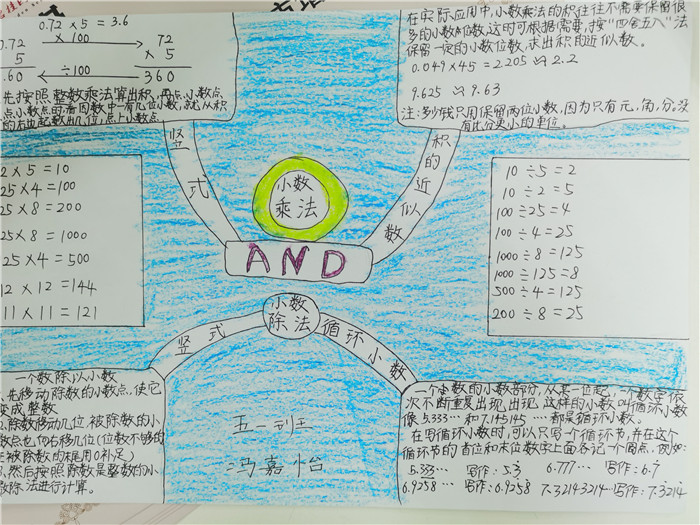 0.72 × 5 = 3.6
0.72 × 100 72
× 5 × 5
.60 ÷100 360
先按照整数乘法算出积,再点小数点
点小数点时,看因数中一共有几位小数,就从积
的右边起数出几位,点上小数点
在实际应用中,小数乘法的积往往不需要保留很
多的小数位数,这时可根据需要,按“四舍五入”法
保留一定的小数位数,求出积的近似数。
0.049×45=2.205≈2.2
9.625≈9.63
注:多少钱只用保留两位小数,因为只有元,角,分。没
有比分更小的单位。
竖式
积的近似数
小数
乘法
AND
2×5=10
25×4=100
25×8=200
25×8=1000
25×4=500
12×12=144
11×11=121
10÷5=2
10÷2=5
100÷25=4
100÷4=25
1000÷8=125
1000÷125=8
500÷4=125
200÷8=25
小数
除法
竖式
循环小数
一个数除以小数
先移动除数的小数点,使它
变成整数
2.除数移动几位,被除数的小
数点也向右移几位(位数不够的
在被除数的末尾用0补足)
3.然后按照除数是整数的小
数除法进行计算。
五一班
冯嘉怡
一个小数的小数部分,从某一位起,一个数字依
次不断重复出现,出现,这样的小数叫循环小数
像5.333…和7.145145…都是循环小数。
在写循环小数时,可以只写一个循环节,并在这个
循环节的首位和末位数字上面各记一个圆点,例如:
5.333… 写作:5.3̇ 6.777… 写作:6.7̇
6.9258… 写作:6.9258 7.32143214…写作:7.3̇214̇